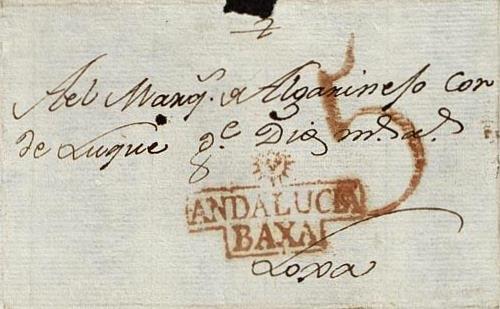 5
Al Marq.s de Algarinejo Con
de Luque g.e Dios m.s a.s
ANDALUCIA
BAXA
Loxa